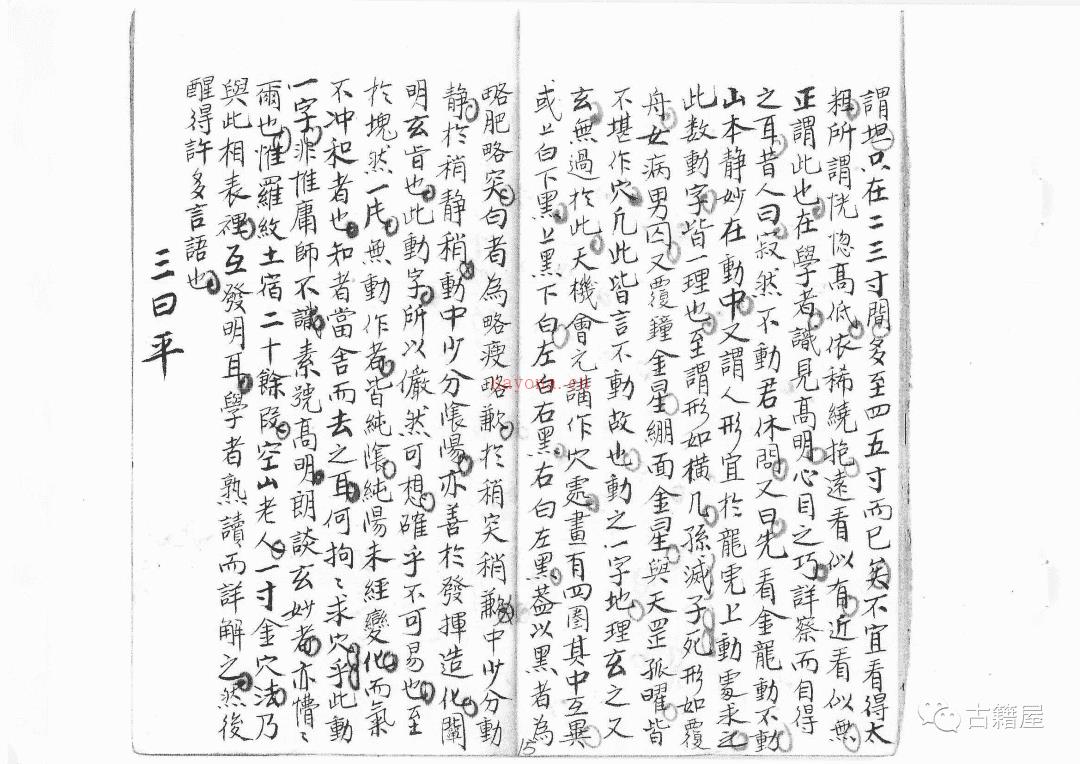 謂坦只在二三寸間多至四五寸而已矣不宜看得太
粗所謂恍惚高低依稀繞抱遠看似有近看似無
正謂此也在學者識見高明心目之巧詳察而自得
之耳昔人曰寂然不動君休問又曰先看金龍動不動
山本静妙在動中又謂人形宜於龍虎上動處求之
此数動字皆一理也至謂形如橫几孫滅子死形如覆
舟女病男囚又覆鐘金星繃面金星與天罡孤曜皆
不堪作穴凢此皆言不動故也動之一字地理玄之又
玄無過於此天機會元講作穴處畫有四圈其中互異
或上白下黑上黑下白左白右黑右白左黑葢以黑者為
15
略肥略突白者為略瘦略歉於稍突稍歉中少分動
静於稍静稍動中少分陰陽亦善於發揮造化闡
明玄旨也此動字所以儼然可想確乎不可易也至
於塊然一片無動作者皆純陰純陽未經變化而氣
不冲和者也知者當舍而去之耳何拘々求穴乎此動
一字非惟庸師不識素號高明朗談玄妙者亦懵々
爾也惟羅紋土宿二十餘段空山老人一寸金穴法乃
與此相表裡互發明耳學者熟讀而詳解之然後
醒得許多言語也
三曰平
古籍屋